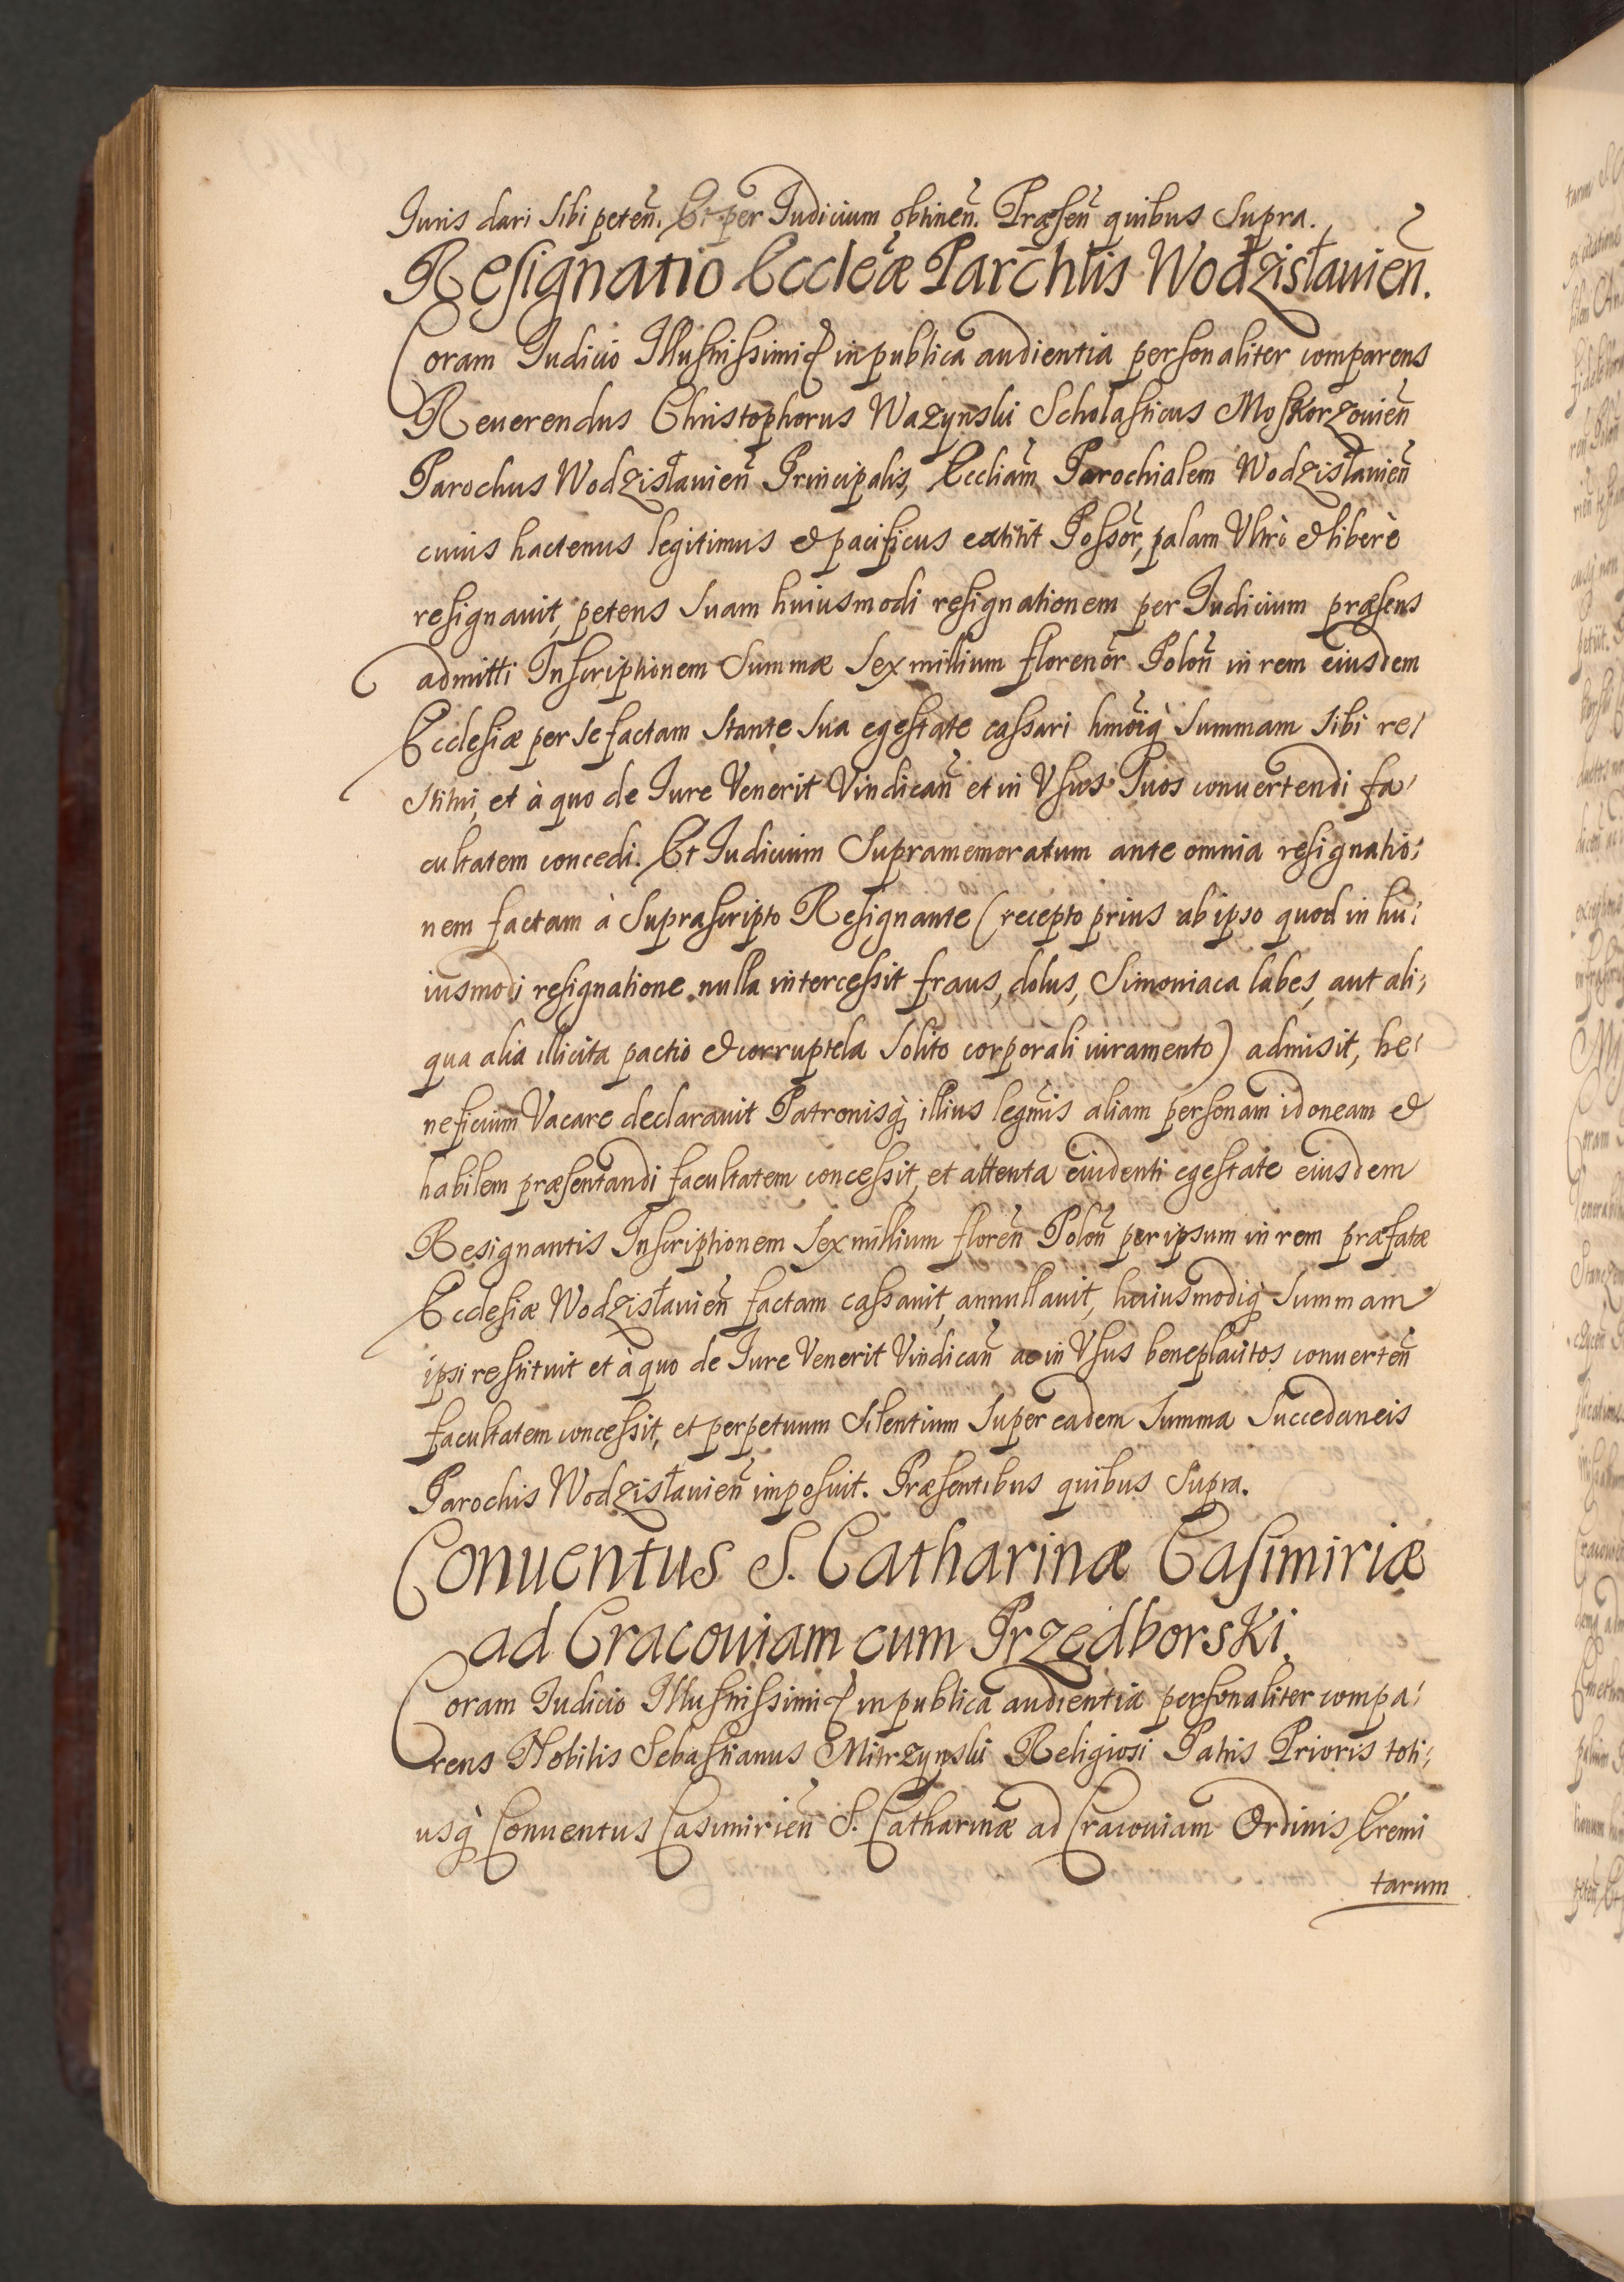 Iuris dari sibi peteñ. Et per Iudicium obtineñ. Præseñ quibus supra.
Resignatio Eccleæ Parchlis Wodzisłauieñ.
Coram Iudicio Illustrissimi & in publica audientia personaliter comparens
Reuerendus Christophorus Wazynski Scholasticus Moskorzouieñ
Parochus Wodzisłauieñ Principalis, Eccliam Parochialem Wodzisłauieñ
cuius hactenus legitimus & pacificus extitit Possor, palam Vltrò & liberè
resignauit, petens suam huiusmodi resignationem per Iudicium præsens
admitti Inscriptionem Summæ sex millium florenor Poloñ in rem eiusdem
Ecclesiæ per se factam stante sua egestate cassari hmōiq̀ summam sibi re/
stitui, et à quo de Iure Venerit Vindicañ et in Vsus suos conuertendi fa/
cultatem concedi. Et Iudicium Supramemoratum ante omnia resignatio:
nem factam à suprascripto Resignante (recepto prius ab ipso quod in hu:
iusmodi resignatione nulla intercessit fraus, dolus, Simoniaca labes, aut ali:
qua alia illicita pactio & corruptela solito corporali iuramento) admisit, be/
neficium Vacare declarauit Patronisq̀ illius legmis aliam personam idoneam &
habilem præsentandi facultatem concessit, et attenta euidenti egestate eiusdem
Resignantis Inscriptionem sex millium floreñ Poloñ per ipsum in rem præfatæ
Ecclesiæ Wodzisłauieñ factam cassauit, annullauit, huiusmodiq̀ summam
ipsi restituit et à quo de Iure Venerit Vindicañ ac in Vsus beneplacitos conuerteñ
facultatem concessit, et perpetuum Silentium super eadem summa succedaneis
Parochis Wodzisłauieñ imposuit. Præsentibus quibus supra.
Conuentus S. Catharinæ Casimiriæ
ad Cracouiam cum Przedborski.
Coram Iudicio Illustrissimi & in publica audientia personaliter compa/
rens Nobilis Sebastianus Mitrzynski Religiosi Patris Prioris toti:
usq̀ Conuentus Casimirieñ S. Catharinæ ad Cracouiam Ordinis Eremi
tarum